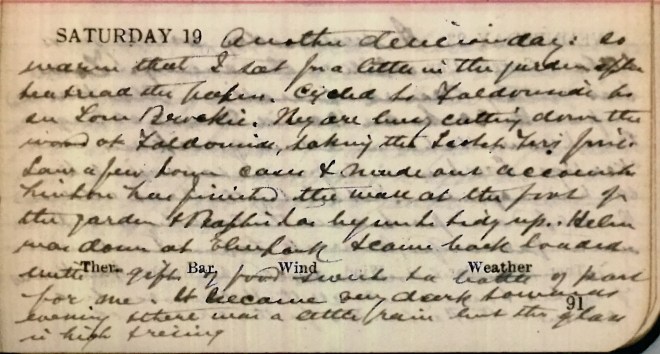 SATURDAY 19 Another delicious day: so
warm that I sat for a little in the garden after
tea & read the papers. Cycled to to
see Tom Brockie. They are busy cutting down the
wood at, taking the Scotch firs first.
Saw a few town cases & made out accounts
has finished the wall at the foot of
the garden & has begun to tidy up. Helen
was down at Elmpark & came back loaded
Ther. Bar. Wind Weather
with gifts of food & with a bottle of port
for me. It became very dark towards
91
evening & there was a little rain but the glass
is high & rising